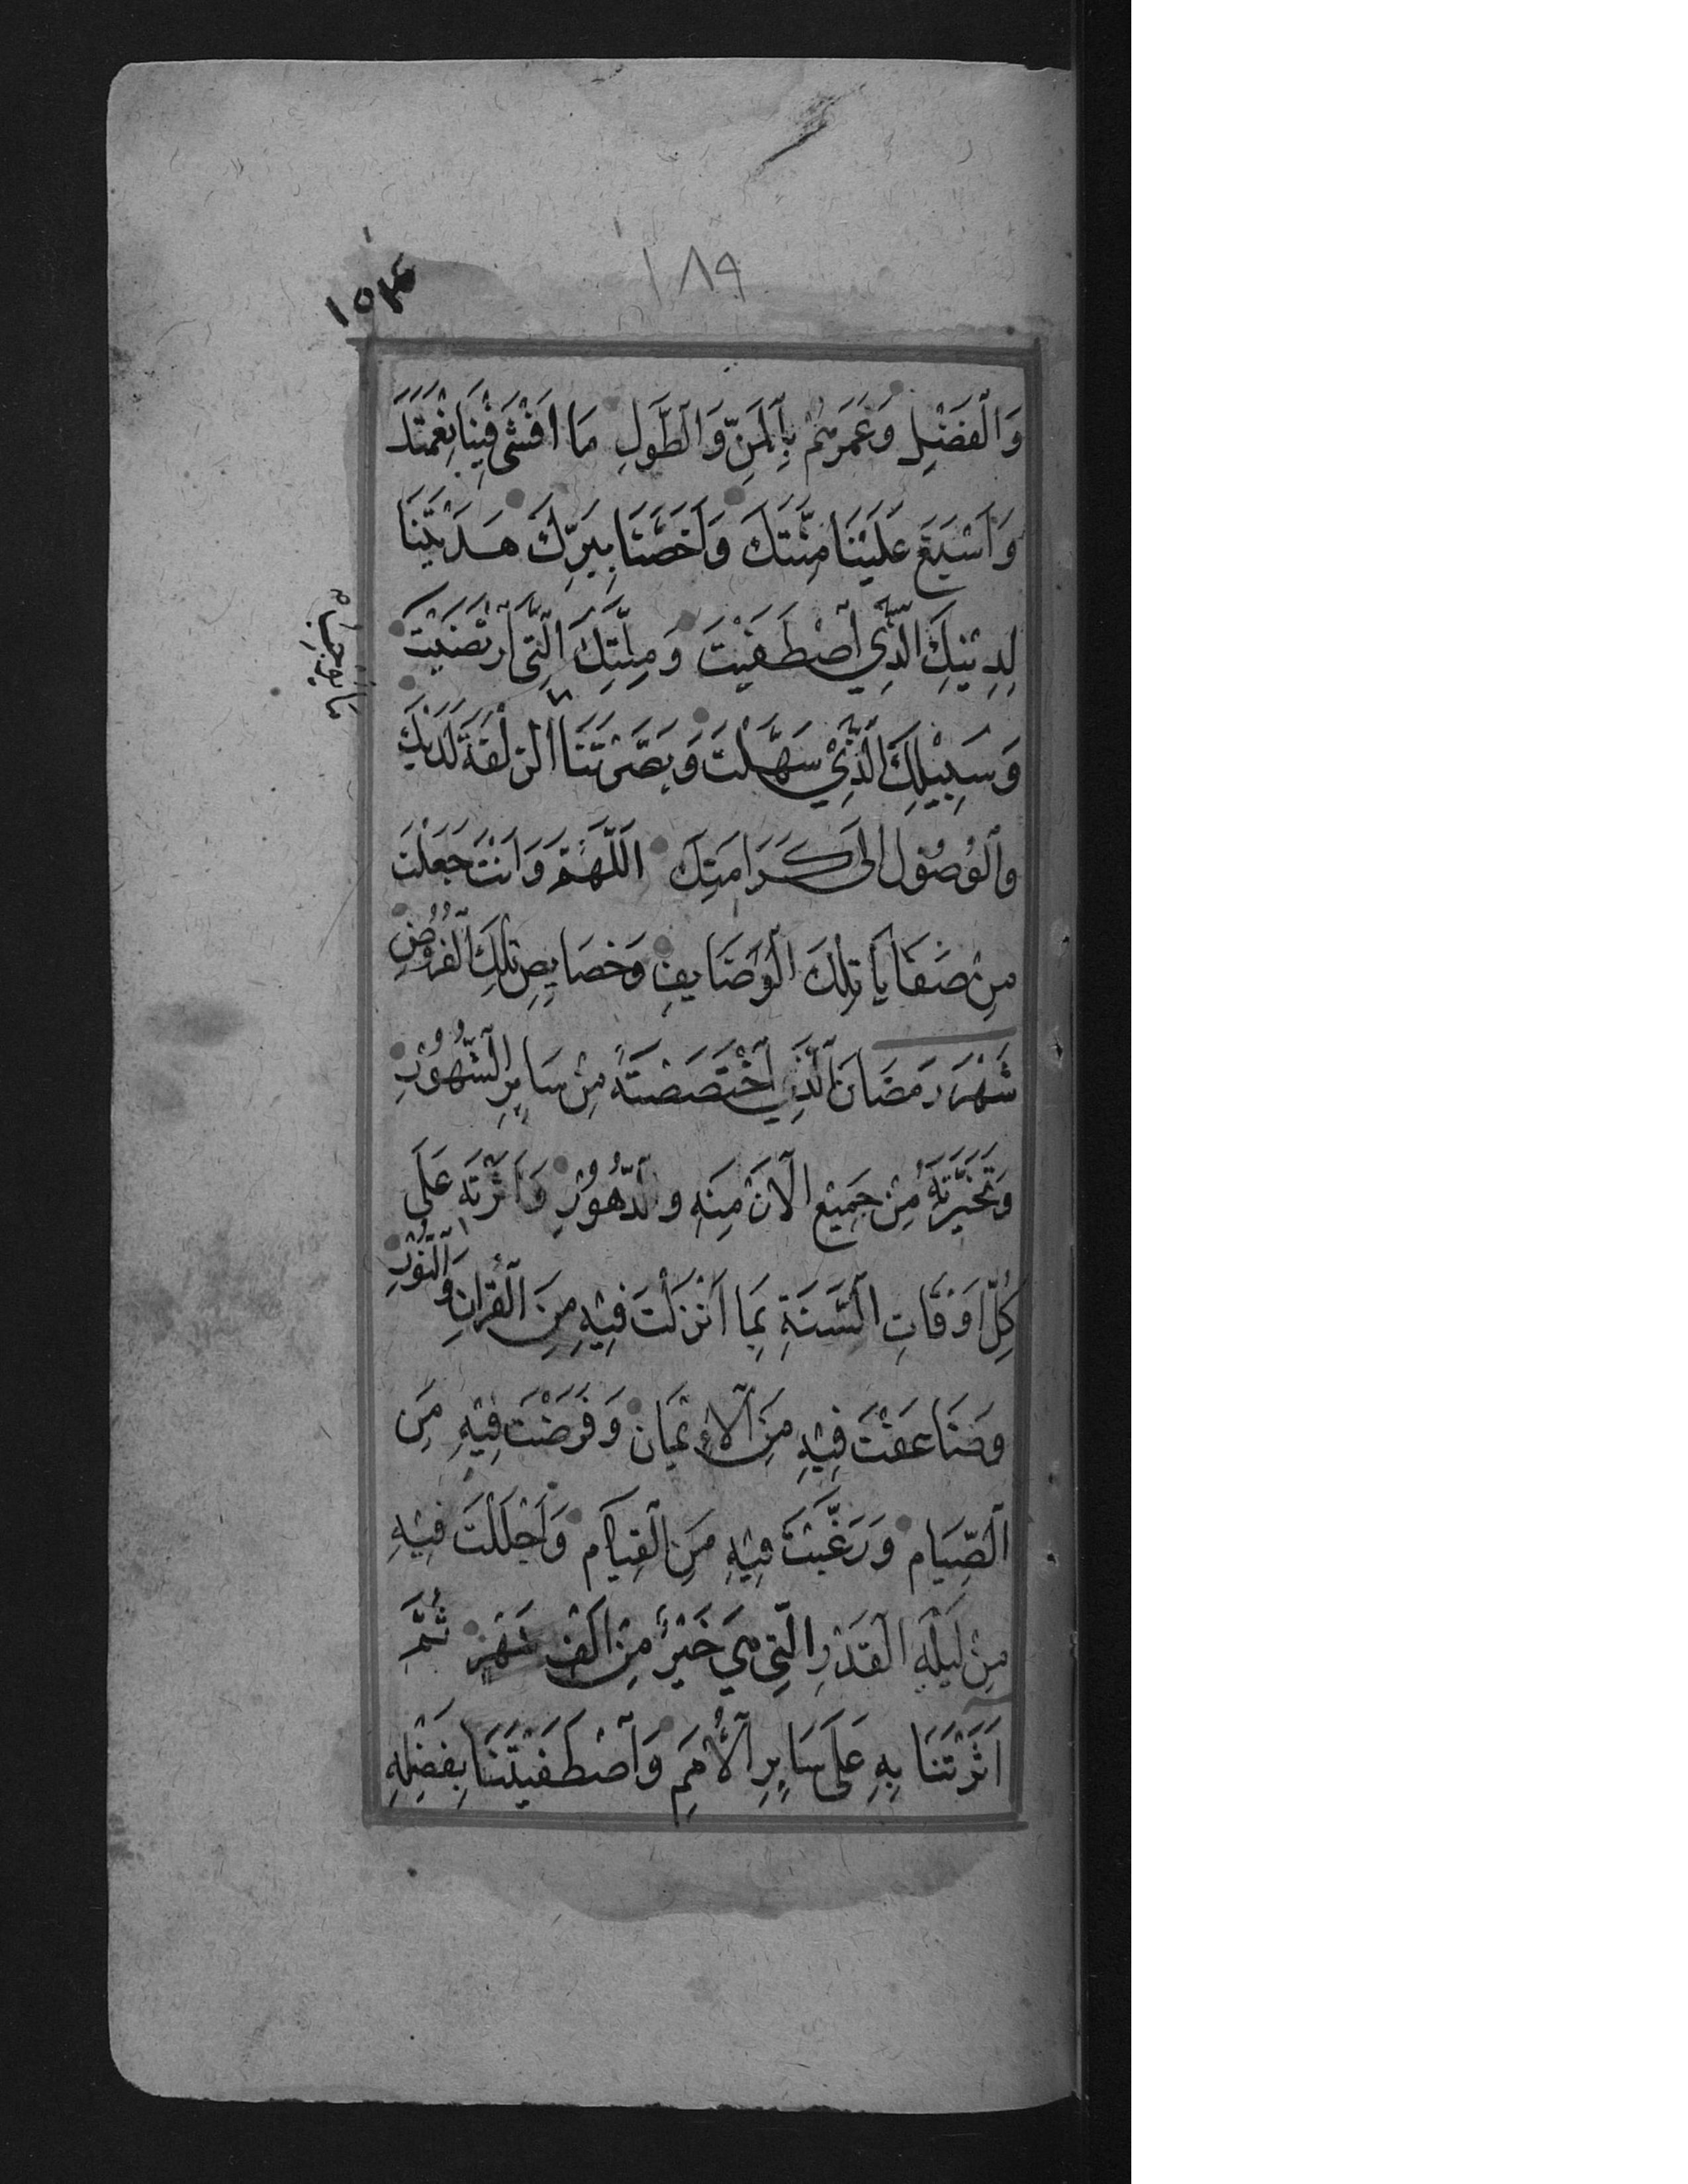 ١٨٩
١٥٤
وَالْفَضْلِ وَغَمَرْتَهُمْ بِالْمَنِّ وَالطَّوْلِ مَا اَفْشٰى فِيْنَا نِعْمَتَكَ
وَاَسْبَغَ عَلَيْنَا مِنَّتَكَ وَاَخَصَّنَا بِبِرِّكَ هَدَيْتَنَا
لِدِيْنِكَ الَّذِي اصْطَفَيْتَ وَمِلَّتِكَ الَّتِي ارْتَضَيْتَ
وَسَبِيْلِكَ الَّذِيْ سَهَّلْتَ وَبَصَّرْتَنَا الزُّلْفَةَ لَدَيْكَ
ما يوجب
وَالْوُصُوْلَ اِلٰى كَرَامَتِكَ اَللّٰهُمَّ وَاَنْتَ جَعَلْتَ
مِنْ صَفَايَا تِلْكَ الْوَضَايِفِ وَخَصَايِصِ تِلْكَ الْفُرُوْضِ
شَهْرَ رَمَضَانَ الَّذِي اخْتَصَصْتَهُ مِنْ سَايِرِ الشُّهُوْرِ
وَتَخَيَّرْتَهُ مِنْ جَمِيْعِ الْاَزْمِنَةِ وَالدُّهُوْرِ وَآثَرْتَهُ عَلٰى
كُلِّ اَوْقَاتِ السَّنَةِ بِمَا اَنْزَلْتَ فِيْهِ مِنَ الْقُرْاٰنِ وَالنُّوْرِ
وَضَاعَفْتَ فِيْهِ مِنَ الْاِيْمَانِ وَفَرَضْتَ فِيْهِ مِنَ
الصِّيَامِ وَرَغَّبْتَ فِيْهِ مِنَ الْقِيَامِ وَاَجْلَلْتَ فِيْهِ
مِنْ لَيْلَةِ الْقَدْرِ الَّتِي هِيَ خَيْرٌ مِنْ اَلْفِ شَهْرٍ ثُمَّ
اٰثَرْتَنَا بِهِ عَلٰى سَايِرِ الْاُمَمِ وَاصْطَفَيْتَنَا بِفَضْلِهِ